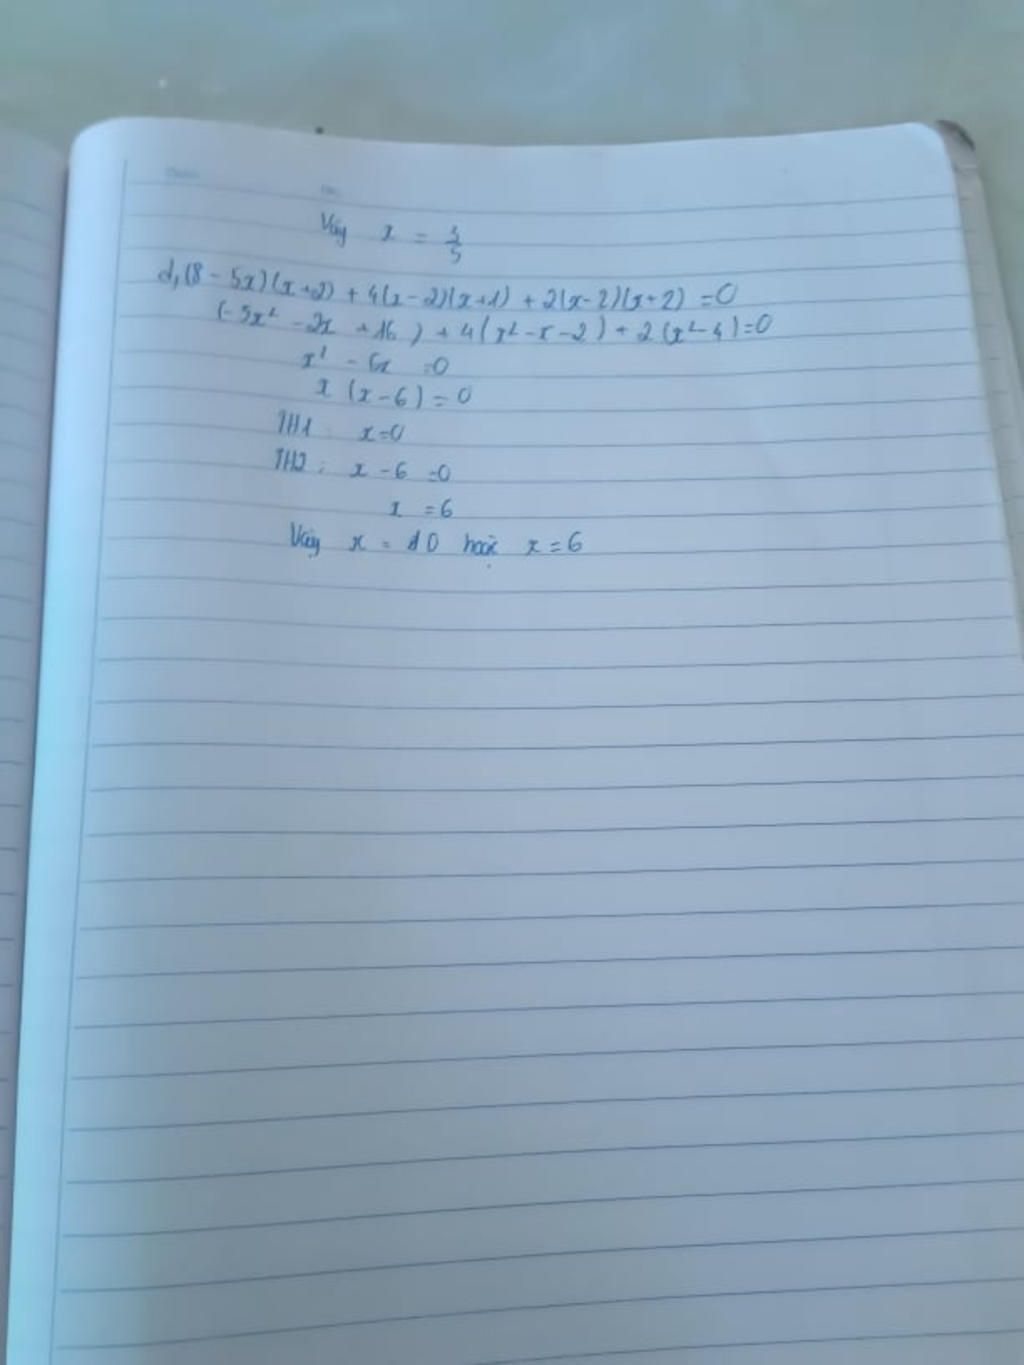 Vậy x = 3/5
d, (8 - 5x)(x+2) + 4(x-2)(x+1) + 2(x-2)(x+2) = 0
(-5x² - 2x + 16) + 4(x² - x - 2) + 2(x² - 4) = 0
x² - 6x = 0
x (x - 6) = 0
TH1: x = 0
TH2: x - 6 = 0
x = 6
Vậy x = 0 hoặc x = 6